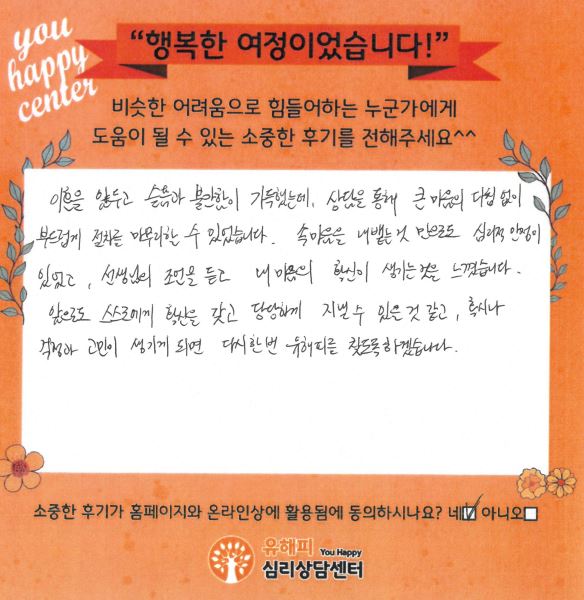 you
happy
center
“행복한 여정이었습니다!”
비슷한 어려움으로 힘들어하는 누군가에게
도움이 될 수 있는 소중한 후기를 전해주세요^^
이혼을 앞두고 슬픔과 불안함이 가득했는데, 상담을 통해 큰 마음의 다침 없이
부드럽게 절차를 마무리할 수 있었습니다. 속마음을 내뱉는 것 만으로도 심리적 안정이
있었고, 선생님의 조언을 듣고 내 마음의 확신이 생기는 것을 느꼈습니다.
앞으로도 스스로에게 확신을 갖고 당당하게 지낼 수 있을 것 같고, 혹시나
걱정과 고민이 생기게 되면 다시 한번 유해피를 찾도록 하겠습니다.
소중한 후기가 홈페이지와 온라인상에 활용됨에 동의하시나요? 네☑ 아니오☐
유해피 You Happy
심리상담센터